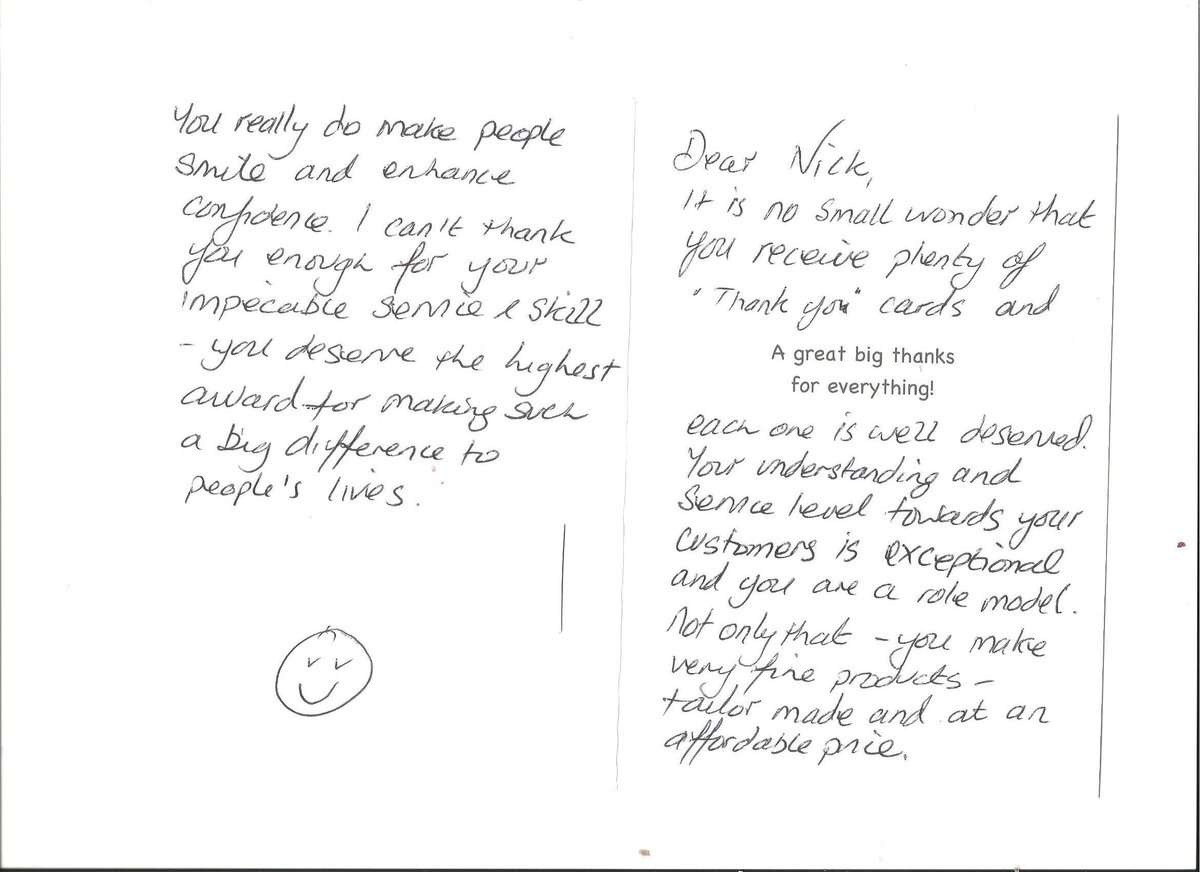 Dear Nick,
It is no small wonder that
you receive plenty of
"Thank you" cards and
A great big thanks
for everything!
each one is well deserved.
Your understanding and
service level towards your
customers is exceptional
and you are a role model.
Not only that - you make
very fine products -
tailor made and at an
affordable price.
You really do make people
smile and enhance
confidence. I can't thank
you enough for your
impecable service & skill
- you deserve the highest
award for making such
a big difference to
people's lives.